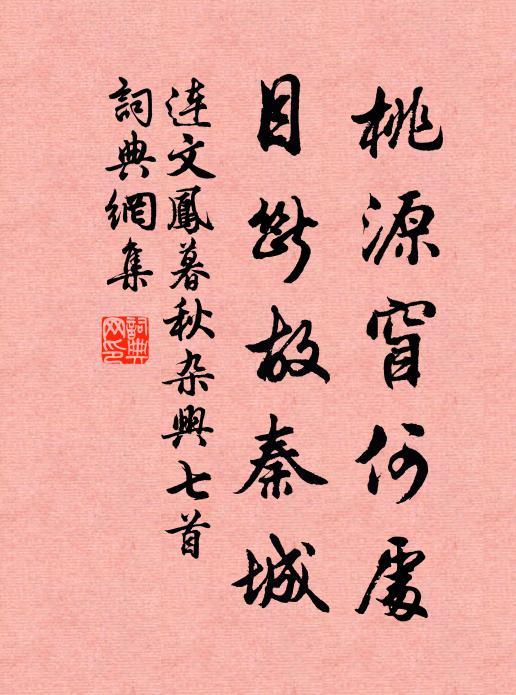 桃源窅何處
目斷故秦城
連文鳳暮秋杂興七首
詞典網集
詞典網印